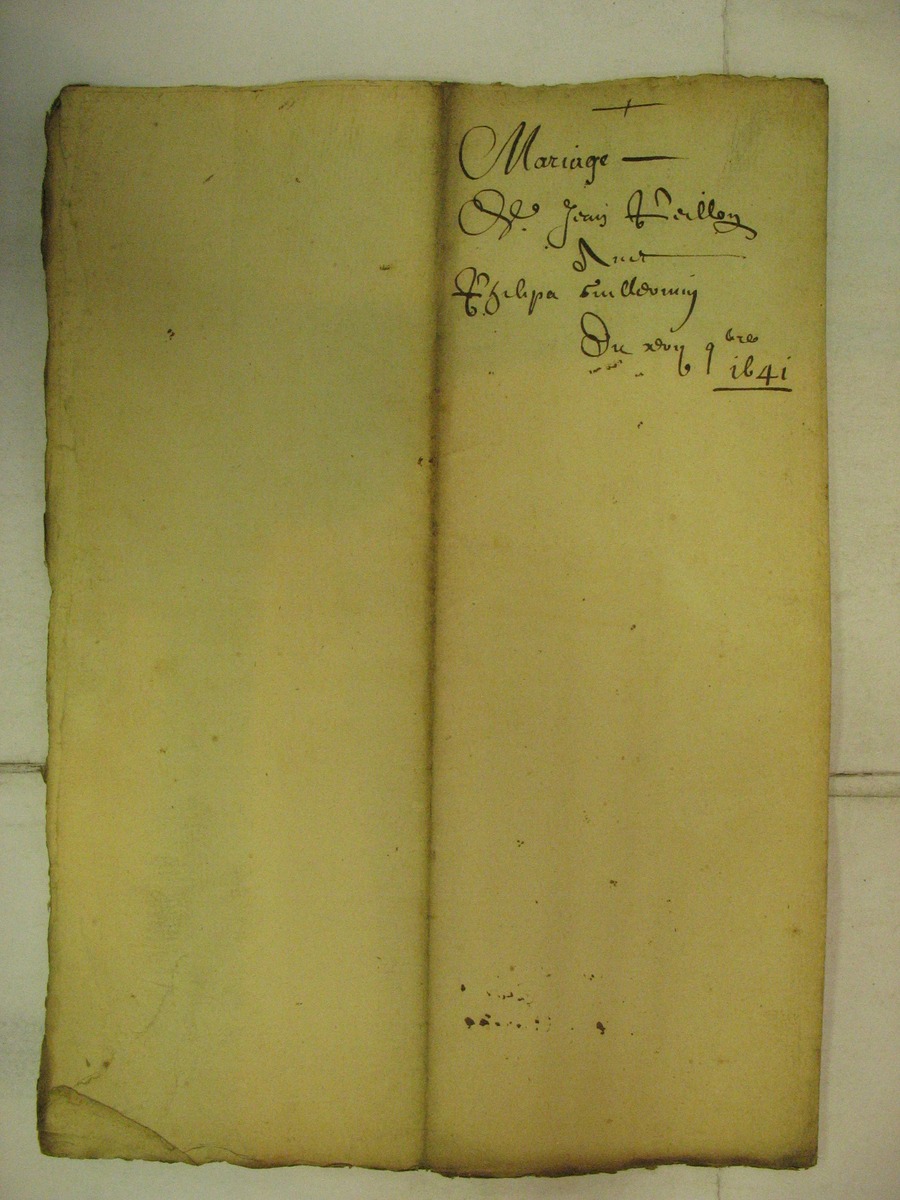 Mariage
De Jean Peillon
Auec
Philipa Guillermin
Du xviij 9bre
1641